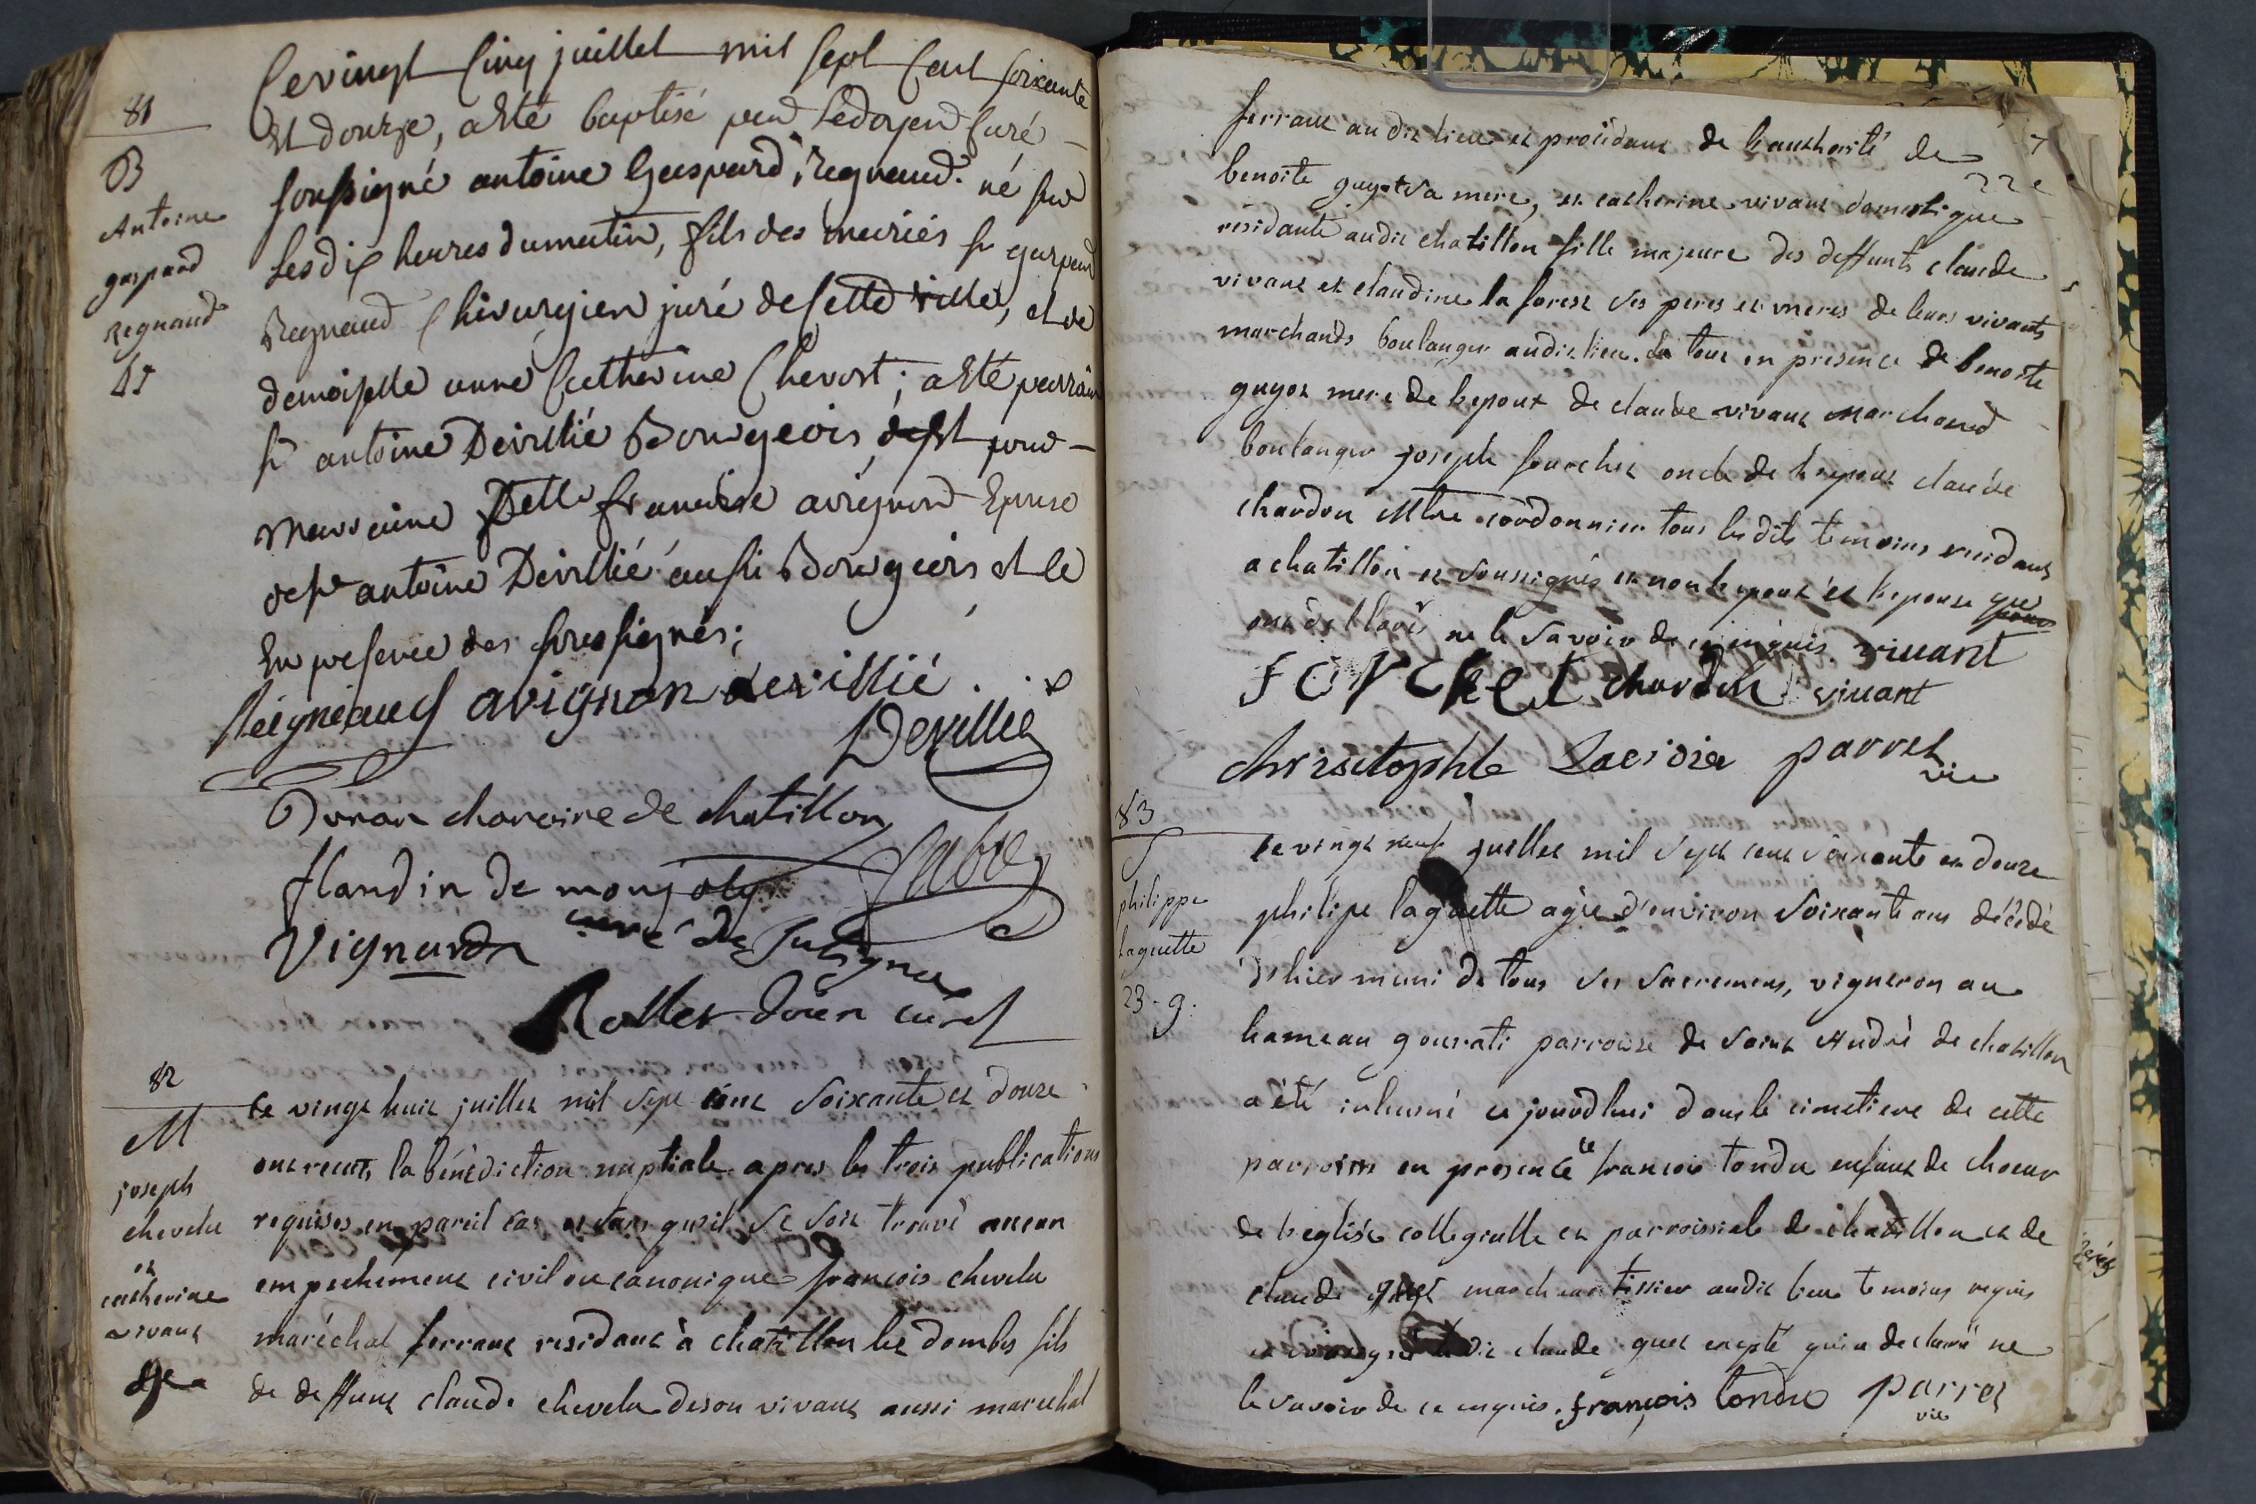 81
B
Antoine
gaspard
Regnaud
Ce vingt Cinq juillet mil sept Cent soixante
Et douze, a Eté baptisé par Le doyen Curé
soussigné antoine Gaspard Regnaud né sur
Les dix heures du matin, fils des mariés sr gaspard
Regnaud Chirurgien juré de Cette ville, et de
demoiselle anne Catherine Chevost; a Eté parrain
sr antoine Devillié Bourgeois, et pour
Marraine Delle francoise avignon Epouse
de sr antoine Devillié aussi Bourgeois et le
En presence des soussignés;
Reigneaud avignon devillié
Devillié
Duran chanoine de chatillon
flandin de monjoly
Vignard curé de
Rollet doïen curé
82
M
joseph
chevelu
et
catherine
vivant
Le vingt huit juillet mil sept cent soixante et douze
ont recuts la bénédiction nuptiale apres les trois publications
requises en pareil cas et sans qu'il se soit trouvé aucun
empechement civil ou canonique francois chevelu
maréchal ferrant residant à chatillon les dombes fils
de deffunt claude chevelu de son vivant aussi marechal
ferrant au dit lieu et procédant de l'authorité de
benoite guyot sa mere, et catherine vivant domestique
résidante audit chatillon fille majeure des deffunts claude
vivant et claudine la forest ses peres et meres de leurs vivants
marchands boulanger audit lieu. Le tout en presence de benoite
guyot mere de l'epoux de claude vivant marchand
boulanger joseph fourchet oncle de l'epoux claude
chardon Mtre cordonnier tous lesdits temoins residants
a chatillon et soussignés et non l'epoux et l'epouse qui
ont déclarés ne le savoir de ce enquis. vivant
FOVRCHET chardon vivant
christophle Lacroix parret
vic
83
S
philippe
laguette
23 - 9.
Le vingt neuf juillet mil sept cent soixante et douze
philipe laguette agée d'environ soixante ans décédé
d'hier muni de tous ses sacremens, vigneron au
hameau gourati parroisse de saint André de chatillon
a été inhumé ce jourd'hui dans le cimetiere de cette
parroisse en presence de francois tondu enfant de choeur
de l'eglise collegialle et parroissiale de chatillon et de
claude guet marchand tissier audit lieu temoins requis
et ledit claude guet excepté qui a declaré ne
le savoir de ce enquis. françois tondu parret
vic